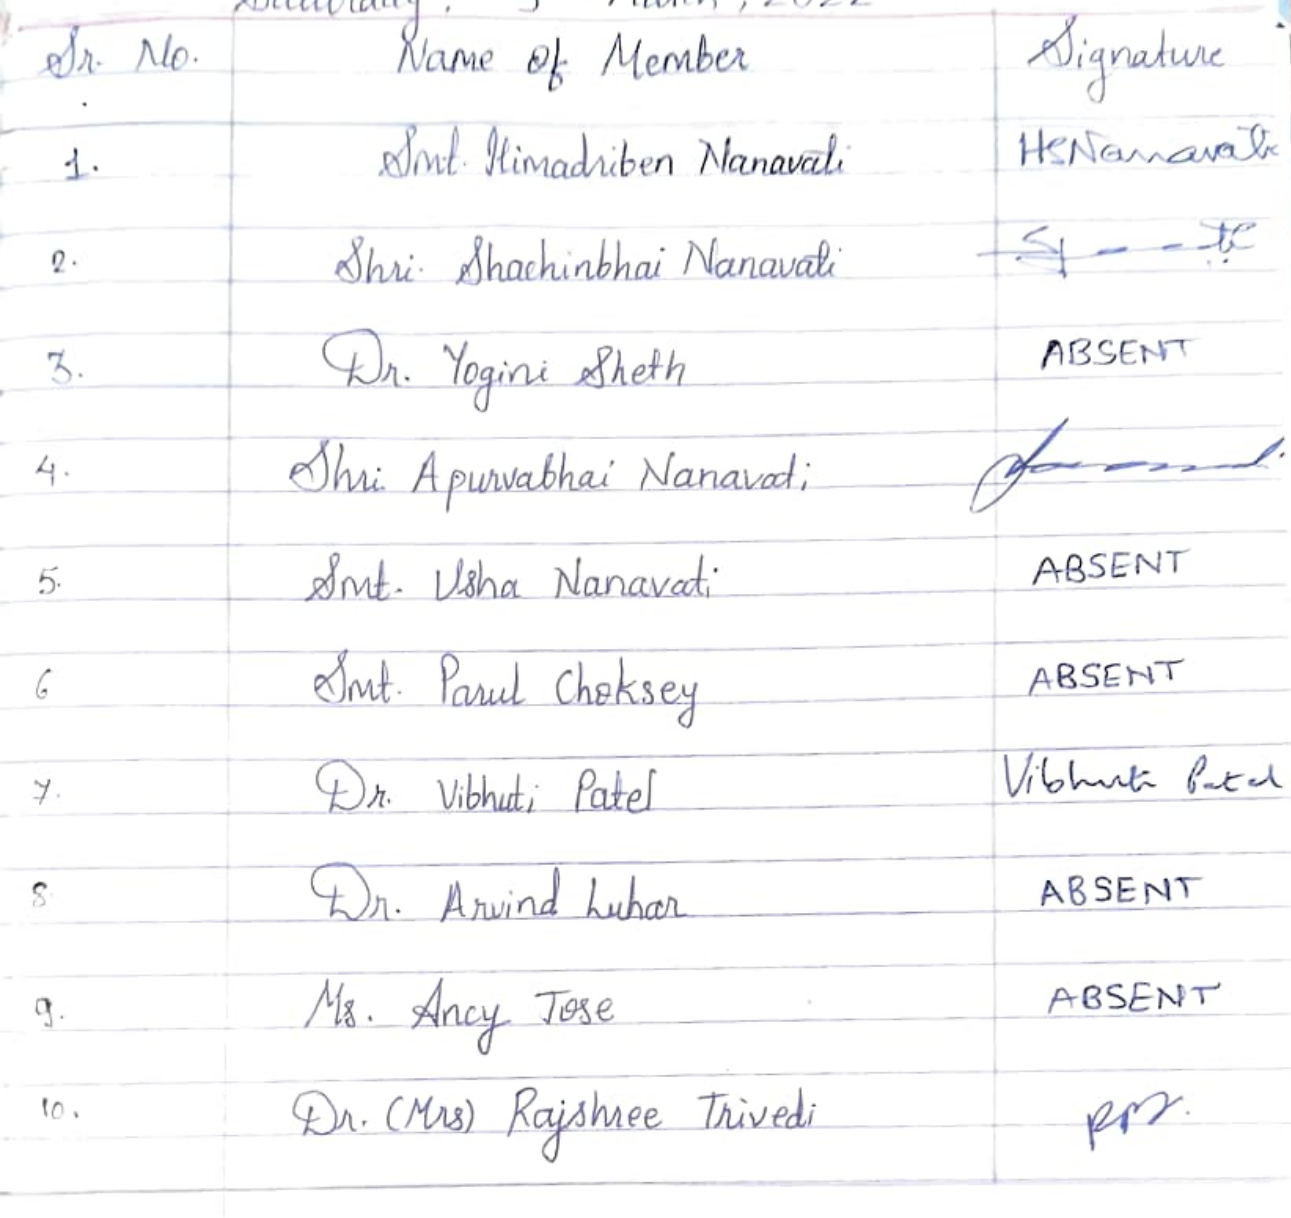 Sr. No. Name of Member Signature
1. Smt. Himadriben Nanavati HSNanavati
2. Shri. Shachinbhai Nanavati
3. Dr. Yogini Sheth ABSENT
4. Shri. Apurvabhai Nanavati
5. Smt. Usha Nanavati ABSENT
6 Smt. Parul Choksey ABSENT
7. Dr. Vibhuti Patel Vibhuti Patel
8 Dr. Arvind Luhar ABSENT
9. Ms. Ancy Jose ABSENT
10. Dr. (Mrs) Rajshree Trivedi